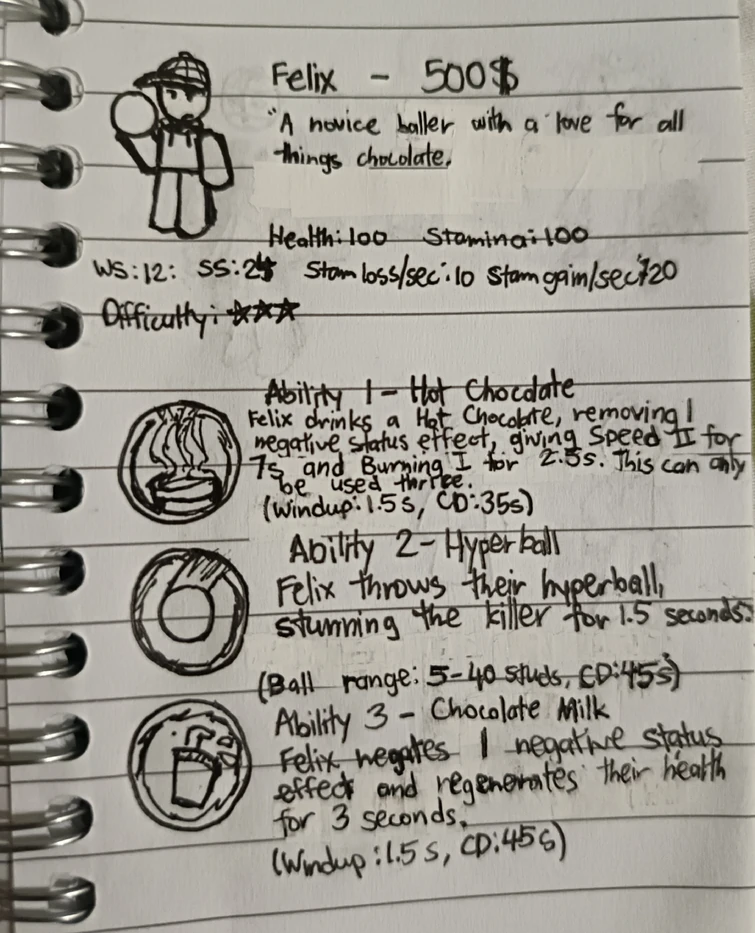 Felix - 500$
"A novice baller with a love for all
things chocolate.
Health:100 Stamina:100
WS:12: SS:24 Stam loss/sec:10 Stam gain/sec:20
Difficulty: ★★★
Ability 1 - Hot Chocolate
Felix drinks a Hot Chocolate, removing 1
negative status effect, giving Speed II for
7s and Burning I for 2.5s. This can only
be used thrice.
(Windup:1.5s, CD:35s)
Ability 2 - Hyperball
Felix throws their hyperball,
stunning the killer for 1.5 seconds.
(Ball range: 5-40 studs, CD:45s)
Ability 3 - Chocolate Milk
Felix negates 1 negative status
effect and regenerates their health
for 3 seconds.
(Windup:1.5s, CD:45s)